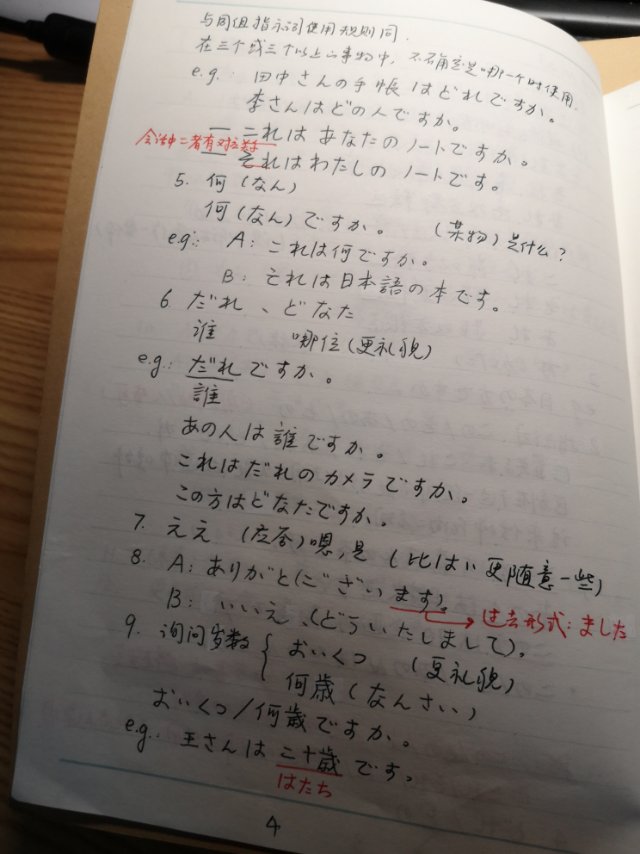 与同组指示词使用规则同.
在三个或三个以上の事物中，不确定是哪一个时使用.
e.g.: 田中さんの手帳はどれですか。
李さんはどの人ですか。
— これはあなたのノートですか。
会话中二者有对应
— それはわたしのノートです。
5. 何(なん)
何(なん)ですか。 (某物)是什么?
e.g.: A: これは何ですか。
B: それは日本語の本です。
6. だれ、どなた
谁 哪位(更礼貌)
e.g: だれですか。
誰
あの人は誰ですか。
これはだれのカメラですか。
この方はどなたですか。
7. ええ (应答)嗯,是 (比はい更随意一些)
8. A: ありがと(ございます)。
→ 过去形式: ました
B: いいえ、(どういたしまして)。
9. 询问岁数 { おいくつ (更礼貌)
何歳(なんさい)
おいくつ/何歳ですか。
e.g.: 王さんは二十歳です。
はたち
4